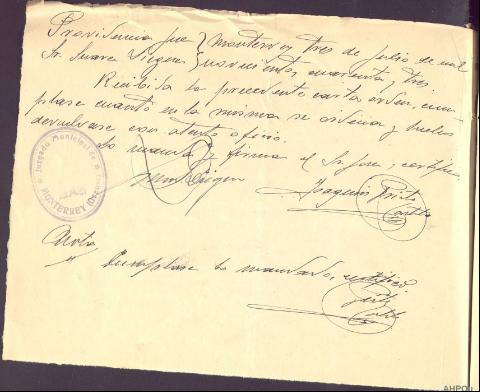 Providencia Juez } Monterrey tres de julio de mil
Sr. Suarez Vieguez } novecientos cuarenta y tres.
Recibida la precedente carta orden, cum-
plase cuanto en la misma se ordena y hecho
devuelvase con atento oficio.
Lo manda y firma el Sr. Juez; certifico.
Joaquin
Juzgado Municipal de
MONTERREY (Ore
Nota
Cumplase lo mandado, certifico
AHPOU